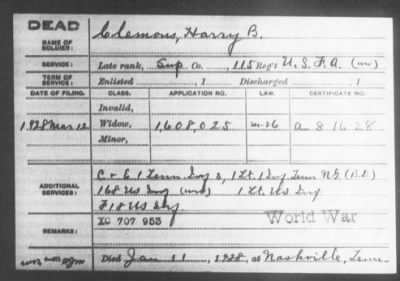 DEAD
NAME OF SOLDIER: Clemons, Harry B.
SERVICE: Late rank, Sup Co., 115 Reg't U.S.F.A. (ww)
TERM OF SERVICE: Enlisted , 1 Discharged , 1
DATE OF FILING. CLASS. APPLICATION NO. LAW. CERTIFICATE NO.
Invalid,
1928 Mar 12 Widow, 1,608,025 m-26 a 8 16 28
Minor,
ADDITIONAL SERVICES: C & E 1 Tenn Inf &, 1 Lt. 1 Inf Tenn N.G. (D.D.)
168 US Inf (ww) 1 Lt. US Inf
F 18 US Inf
XC 707 953 World War
REMARKS:
Died Jan 11, 1928, at Nashville, Tenn.